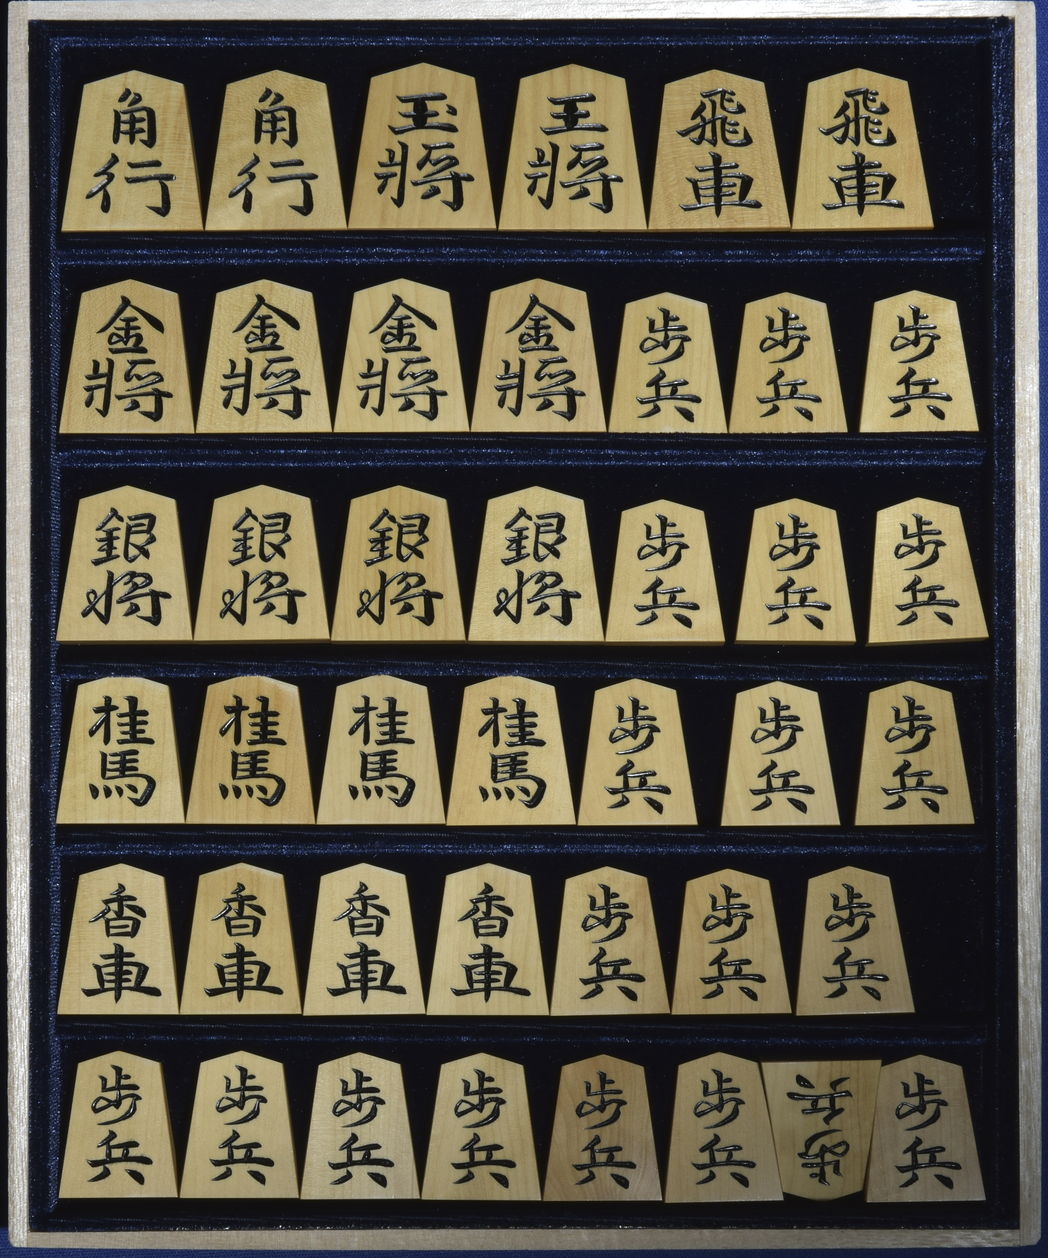 角行 角行 玉將 王將 飛車 飛車
金將 金將 金將 金將 歩兵 歩兵 歩兵
銀将 銀将 銀将 銀将 歩兵 歩兵 歩兵
桂馬 桂馬 桂馬 桂馬 歩兵 歩兵 歩兵
香車 香車 香車 香車 歩兵 歩兵 歩兵
歩兵 歩兵 歩兵 歩兵 歩兵 歩兵 歩兵 歩兵